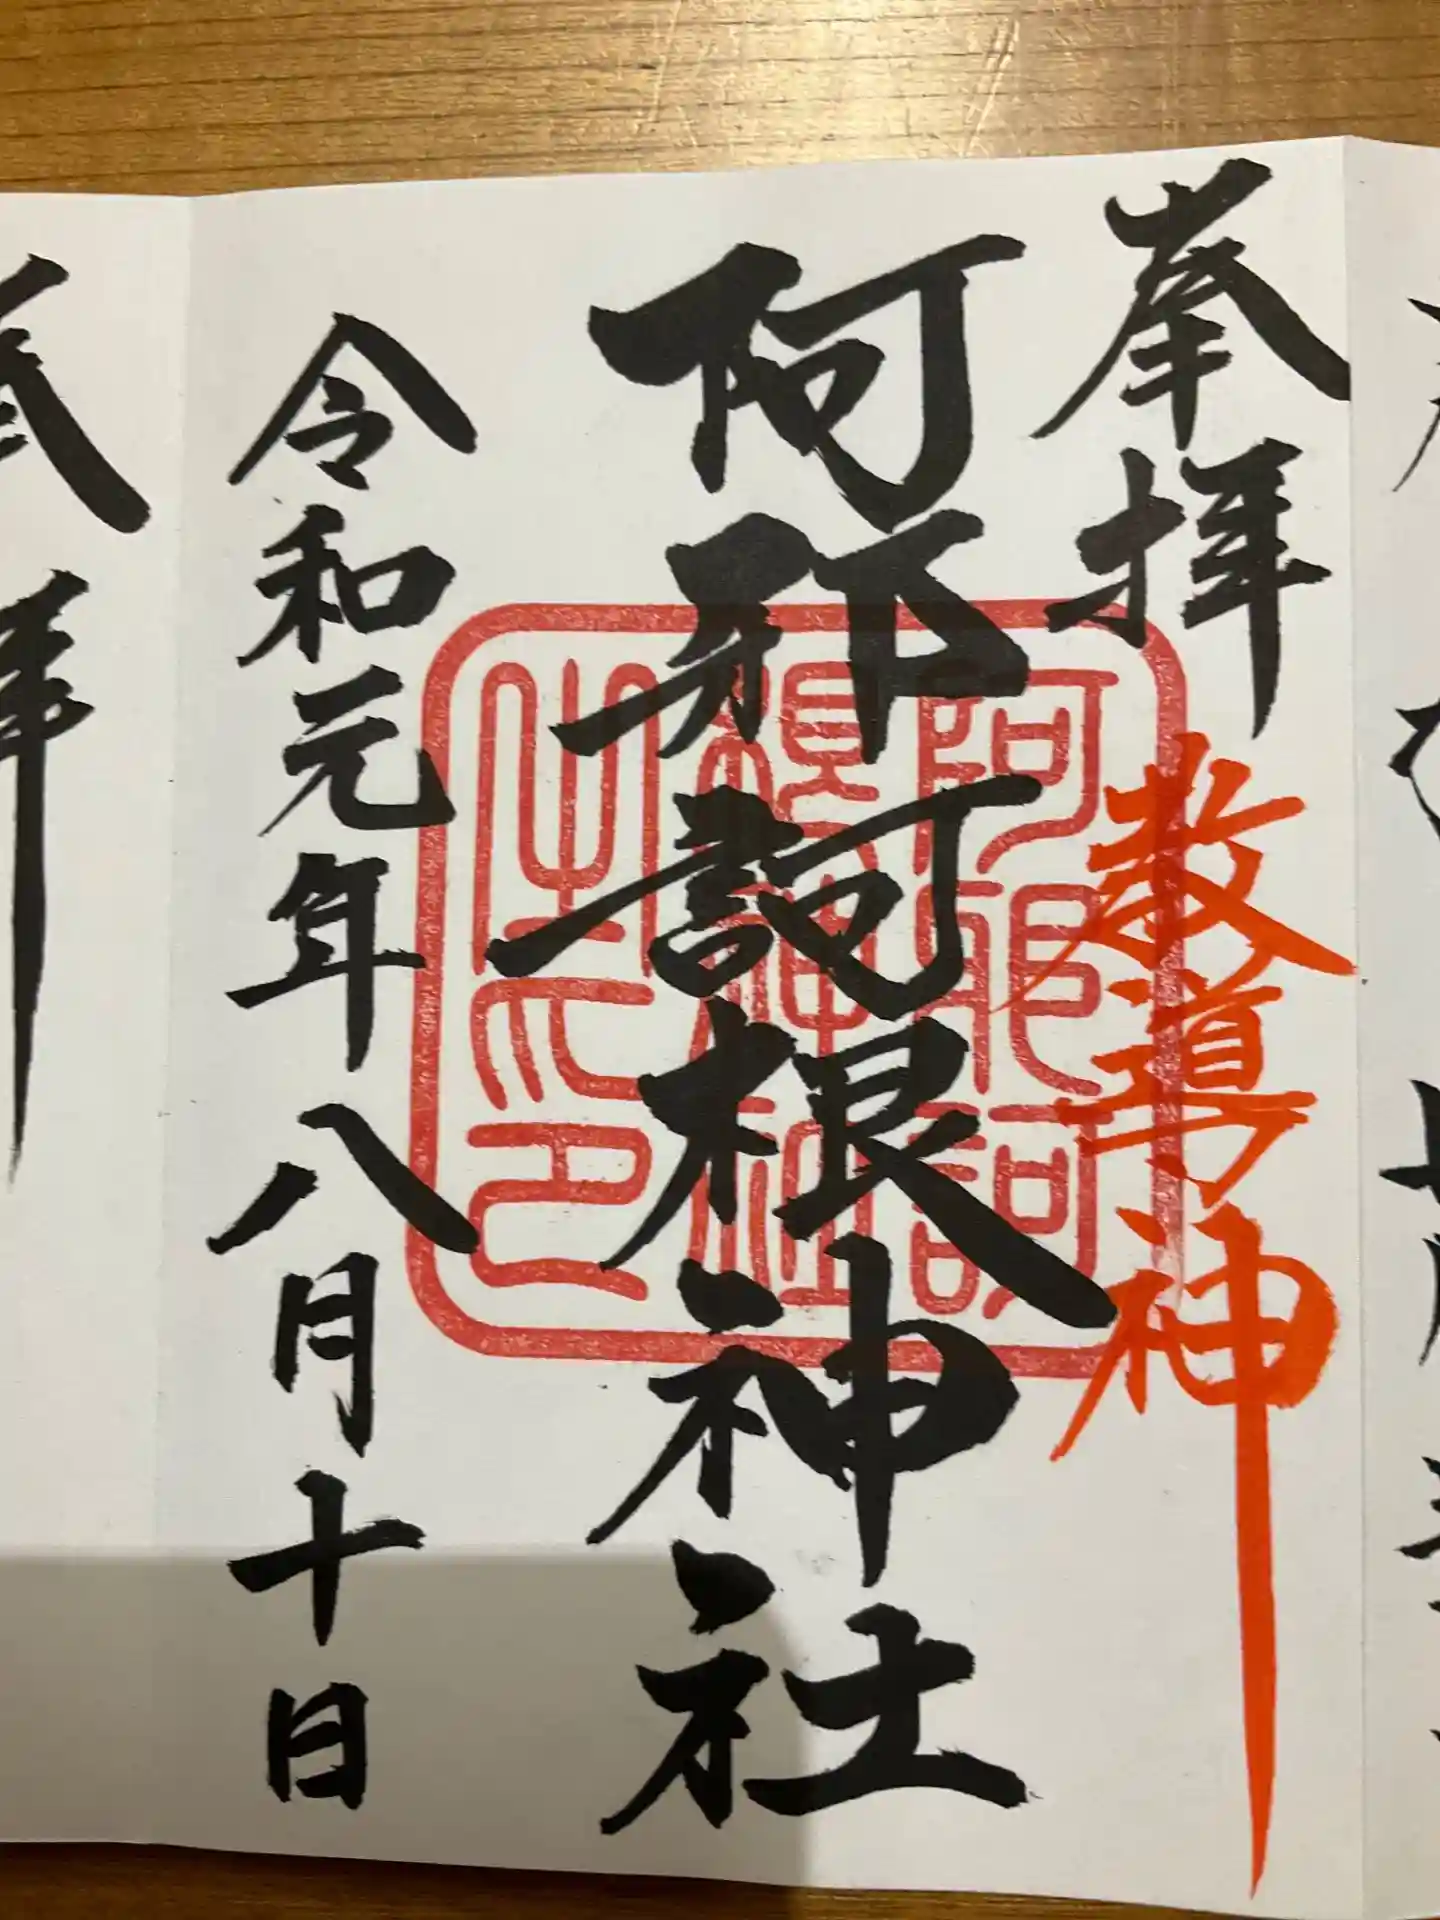 奉拝
教導神
阿邪訶根神社
阿邪訶
根神社
之印
令和元年八月十日
拝